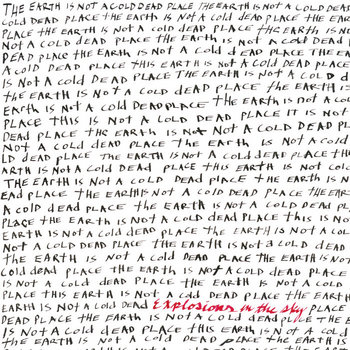 THE EARTH IS NOT A COLD DEAD PLACE THE EARTH IS NOT A COLD DEAD
COLD DEAD PLACE THE EARTH IS NOT A COLD DEAD PLACE THE EAR
PLACE THE EARTH IS NOT A COLD DEAD PLACE THE EARTH IS NO
NOT A COLD DEAD PLACE THE EARTH IS NOT A COLD DEAD P
DEAD PLACE THE EARTH IS NOT A COLD DEAD PLACE THE EAR
A COLD DEAD PLACE THIS EARTH IS NOT A COLD DEAD PLACE
IS NOT A COLD DEAD PLACE THE EARTH IS NOT A COLD D
THE EARTH IS NOT A COLD DEAD PLACE THE EARTH IS
EARTH IS NOT A COLD DEAD PLACE THE EARTH IS NOT A COLD
PLACE THIS IS NOT A COLD DEAD PLACE IT IS NOT
DEAD PLACE THE EARTH IS NOT A COLD DEAD PL
NOT A COLD DEAD PLACE THE EARTH IS NOT A COLD
LD DEAD PLACE THE EARTH IS NOT A COLD DEAD PLACE TH
ARTH IS NOT A COLD DEAD PLACE THIS EARTH IS NOT COL
THE EARTH IS NOT A COLD DEAD PLACE THE EARTH IS N
EAD PLACE THE EARTH IS NOT A COLD DEAD PLACE THE EAR
A COLD DEAD PLACE THE EARTH IS NOT A COLD DEAD PL
PLACE THE EARTH IS NOT A COLD DEAD PLACE THIS IS NO
EARTH IS NOT A COLD DEAD PLACE THE EARTH IS NOT A COLD
NOT A COLD DEAD PLACE THE EARTH IS NOT A COLD DEAD
THE EARTH IS NOT A COLD DEAD PLACE THE EARTH IS
COLD DEAD PLACE THE EARTH IS NOT A COLD DEAD PLACE THE EARTH IS NOT
IS NOT A COLD DEAD PLACE THE EARTH IS NOT A COLD D
PLACE THIS EARTH IS NOT A COLD DEAD PLACE THE EARTH
EARTH IS NOT A COLD DEAD Explosions in the sky PLACE
DEAD PLACE THE EARTH IS NOT A COLD DEAD PLACE THE E
IS NOT A COLD DEAD PLACE THIS EARTH IS NOT A COLD
THE EARTH IS NOT A COLD DEAD PLACE THE EARTH IS NOT